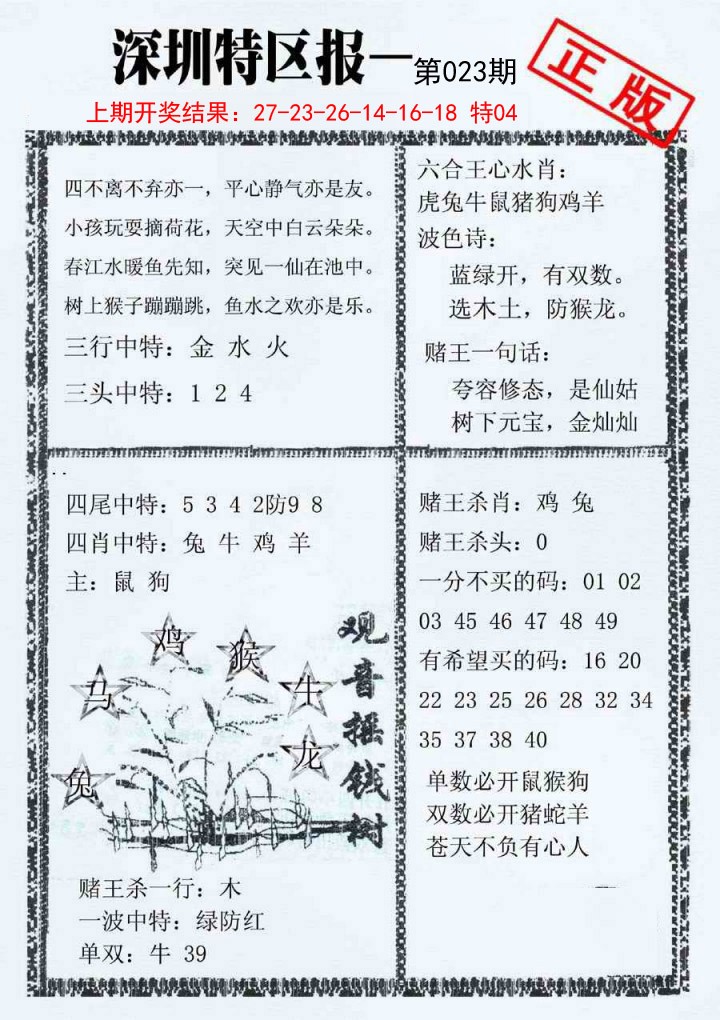 深圳特区报—第023期
正版
上期开奖结果：27-23-26-14-16-18 特04
四不离不弃亦一，平心静气亦是友。
小孩玩耍摘荷花，天空中白云朵朵。
春江水暖鱼先知，突见一仙在池中。
树上猴子蹦蹦跳，鱼水之欢亦是乐。
三行中特：金 水 火
三头中特：1 2 4
六合王心水肖：
虎兔牛鼠猪狗鸡羊
波色诗：
蓝绿开，有双数。
选木土，防猴龙。
赌王一句话：
夸容修态，是仙姑
树下元宝，金灿灿
四尾中特：5 3 4 2防9 8
四肖中特：兔 牛 鸡 羊
主：鼠 狗
鸡
猴
马
牛
龙
兔
观音摇钱树
赌王杀一行：木
一波中特：绿防红
单双：牛 39
赌王杀肖：鸡 兔
赌王杀头：0
一分不买的码：01 02
03 45 46 47 48 49
有希望买的码：16 20
22 23 25 26 28 32 34
35 37 38 40
单数必开鼠猴狗
双数必开猪蛇羊
苍天不负有心人